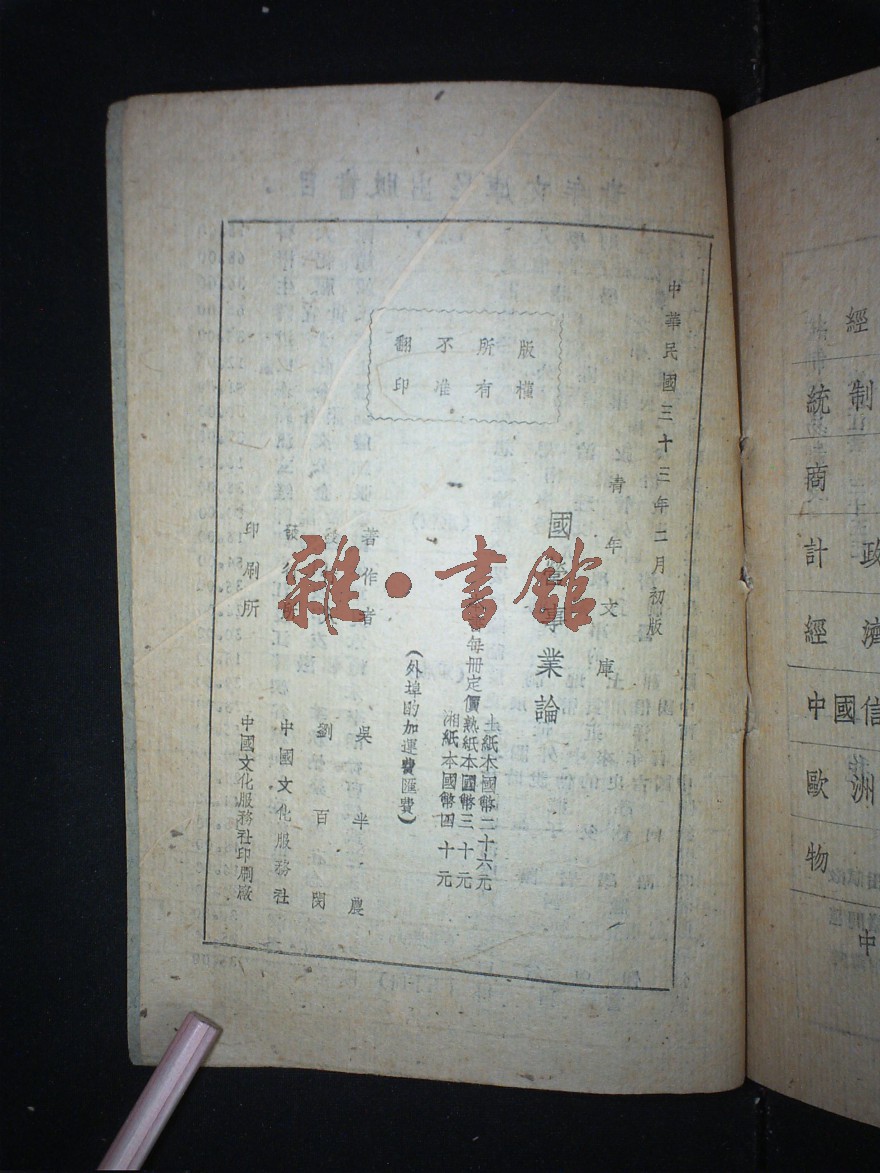 中華民國三十三年二月初版
版權所有
不准翻印
青年文庫
國營事業論
每冊定價
土紙本國幣二十六元
熟紙本國幣三十元
湘紙本國幣四十元
(外埠酌加運費匯費)
著作者 吳半農
發 人 劉百閔
發行所 中國文化服務社
印刷所 中國文化服務社印刷廠
雜·書館
經
統制
商
計政
經濟
中國信
歐洲
物
中